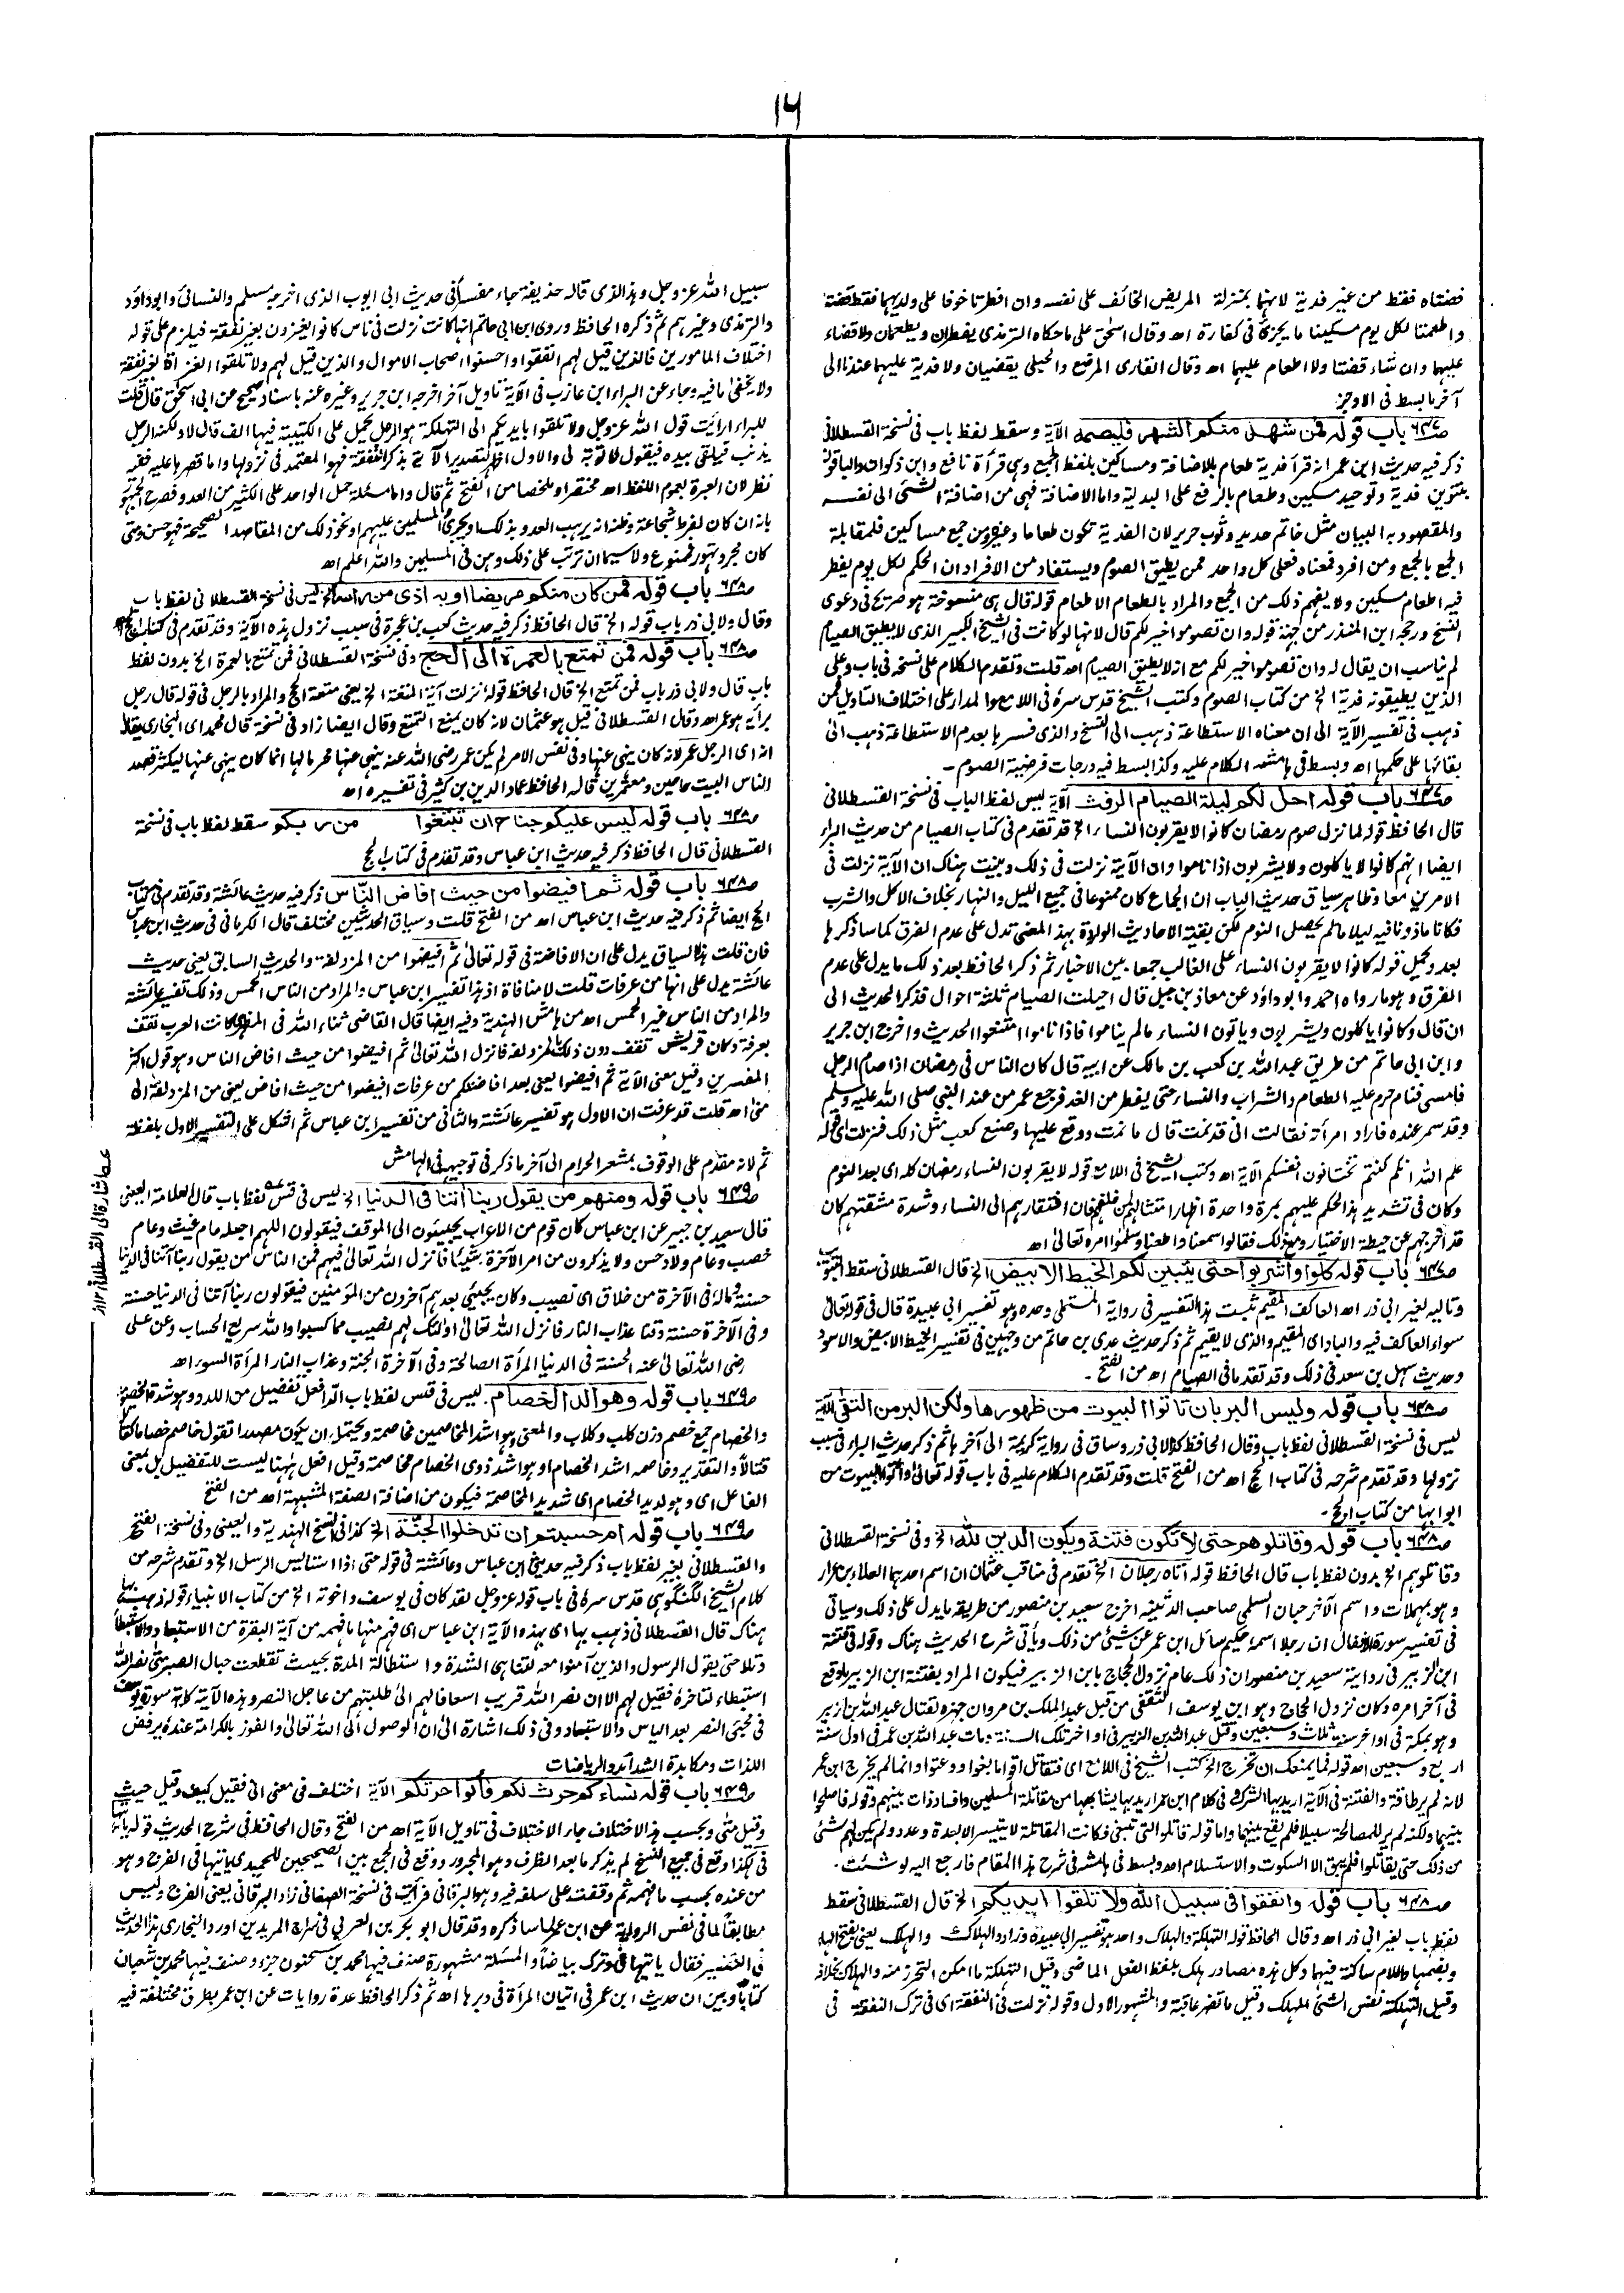 ١٦
قضتاه فقط من غير فدية لانهما بمنزلة المريض الخائف على نفسه وان افطرتا خوفا على ولديهما فقط قضتا
واطعمتا لكل يوم مسكينا ما يجزئ فى كفارة اھ وقال اسحق على ما حكاه الترمذى يفطران ويطعمان ولا قضاء
عليهما وان شاء قضتا ولا اطعام عليهما اھ وقال القارى المرضع والحبلى يقضيان ولا فدية عليهما عندنا الى
آخر ما بسط فى الاوجز
ص٦٤٧ باب قوله فمن شهد منكم الشهر فليصمه الآية وسقط لفظ باب فى نسخة القسطلانى
ذكر فيه حديث ابن عمر انه قرأ فدية طعام بالاضافة ومساكين بلفظ الجمع وهى قرأة نافع وابن ذكوان والباقون
بتنوين فدية وتوحيد مسكين وطعام بالرفع على البدلية واما الاضافة فهى من اضافة الشئ الى نفسه
والمقصود به البيان مثل خاتم حديد وثوب حرير لان الفدية تكون طعاما وغيره ومن جمع مساكين فلمقابلة
الجمع بالجمع ومن افرد فمعناه فعلى كل واحد ممن يطيق الصوم ويستفاد من الافراد ان الحكم لكل يوم يفطر
فيه اطعام مسكين ولا يفهم ذلك من الجمع والمراد بالطعام الاطعام قوله قال هى منسوخة هو صريح فى دعوى
النسخ ورجحه ابن المنذر من جهة قوله وان تصوموا خير لكم قال لانها لو كانت فى الشيخ الكبير الذى لا يطيق الصيام
لم يناسب ان يقال له وان تصوموا خير لكم مع انه لا يطيق الصيام اھ قلت وتقدم الكلام على نسخه فى باب وعلى
الذين يطيقونه فدية الخ من كتاب الصوم وكتب الشيخ قدس سره فى اللامع والمدار على اختلاف التاويل فمن
ذهب فى تفسير الآية الى ان معناه الاستطاعة ذهب الى النسخ والذى فسرها بعدم الاستطاعة ذهب الى
بقائها على حكمها اھ وبسط فى هامشه الكلام عليه وكذا بسط فيه درجات فرضية الصوم ـ
ص٦٤٧ باب قوله احل لكم ليلة الصيام الرفث الآية ليس لفظ الباب فى نسخة القسطلانى
قال الحافظ قوله لما نزل صوم رمضان كانوا لا يقربون النساء الخ قد تقدم فى كتاب الصيام من حديث البراء
ايضا انهم كانوا لا ياكلون ولا يشربون اذا ناموا وان الآية نزلت فى ذلك وبينت هناك ان الآية نزلت فى
الامرين معا وظاهر سياق حديث الباب ان الجماع كان ممنوعا فى جميع الليل والنهار بخلاف الاكل والشرب
فكانا ماذونا فيه ليلا ما لم يحصل النوم لكن بقية الاحاديث الواردة بهذا المعنى تدل على عدم الفرق كما ساذكرها
بعد فيحمل قوله كانوا لا يقربون النساء على الغالب جمعا بين الاخبار ثم ذكر الحافظ بعد ذلك ما يدل على عدم
الفرق وهو ما رواه احمد وابو داؤد عن معاذ بن جبل قال احيلت الصيام ثلثة احوال فذكر الحديث الى
ان قال وكانوا ياكلون ويشربون وياتون النساء ما لم يناموا فاذا ناموا امتنعوا الحديث واخرج ابن جرير
وابن ابى حاتم من طريق عبد الله بن كعب بن مالك عن ابيه قال كان الناس فى رمضان اذا صام الرجل
فامسى فنام حرم عليه الطعام والشراب والنساء حتى يفطر من الغد فرجع عمر من عند النبى صلى الله عليه وسلم
وقد سمر عنده فاراد امرأته فقالت انى قد نمت قال ما نمت ووقع عليها وصنع كعب مثل ذلك فنزلت اى قوله
علم الله انكم كنتم تختانون انفسكم الآية اھ وكتب الشيخ فى اللامع قوله لا يقربون النساء رمضان كله اى بعد النوم
وكان فى تشديد هذا الحكم عليهم بمرة واحدة اظهارا امتثالهم فان افتقارهم الى النساء وشدة مشقتهم كان
قد اخرجهم عن حيطة الاختيار ومع ذلك فقالوا سمعنا واطعنا وسلموا امره تعالى اھ
ص٦٤٧ باب قوله كلوا واشربوا حتى يتبين لكم الخيط الابيض الخ قال القسطلانى سقط التبويب
وتاليه لغير ابى ذر اھ العاكف المقيم ثبت هذا التفسير فى رواية المستملى وحده وهو تفسير ابى عبيدة قال فى قوله تعالى
سواء العاكف فيه والباد اى المقيم والذى لا يقيم ثم ذكر حديث عدى بن حاتم من وجهين فى تفسير الخيط الابيض والاسود
وحديث سهل بن سعد فى ذلك وقد تقدما فى الصيام اھ من الفتح ـ
ص٦٤٨ باب قوله وليس البر بان تاتوا البيوت من ظهورها ولكن البر من اتقى الآية
ليس فى نسخة القسطلانى لفظ باب وقال الحافظ كذا لابى ذر وساق فى رواية كريمة الى آخرها ثم ذكر حديث البراء فى سبب
نزولها وقد تقدم شرحه فى كتاب الحج اھ من الفتح قلت وقد تقدم الكلام عليه فى باب قوله تعالى وأتوا البيوت من
ابوابها من كتاب الحج ـ
ص٦٤٨ باب قوله وقاتلوهم حتى لا تكون فتنة ويكون الدين لله الخ وفى نسخة القسطلانى
وقاتلوهم الخ بدون لفظ باب قال الحافظ قوله أتاه رجلان الخ تقدم فى مناقب عثمان ان اسم احدهما العلاء بن عرار
وهو بمهملات واسم الآخر حبان السلمى صاحب الدثينة اخرج سعيد بن منصور من طريقه ما يدل على ذلك وسياتى
فى تفسير سورة الانفال ان رجلا اسمه حكيم سائل ابن عمر عن شئ من ذلك ويأتى شرح الحديث هناك وقوله فى فتنة
ابن الزبير فى رواية سعيد بن منصور ان ذلك عام نزول الحجاج بابن الزبير فيكون المراد بفتنة ابن الزبير ما وقع
فى آخر امره وكان نزول الحجاج وهو ابن يوسف الثقفى من قبل عبد الملك بن مروان جهزه لقتال عبد الله بن الزبير
وهو بمكة فى اواخر سنة ثلاث وسبعين وقتل عبد الله بن الزبير فى اواخر تلك السنة ومات عبد الله بن عمر فى اول سنة
اربع وسبعين اھ قوله فما يمنعك ان تخرج الخ كتب الشيخ فى اللامع اى فتقاتل اقواما بغوا وعتوا وانما لم يخرج ابن عمر
لانه لم ير طاقة والفتنة فى الآية اريد بها الشرك وفى كلام ابن عمر اريد بها ما من مقاتلة المسلمين وافساد ذات بينهم وقوله فاصلحوا
بينهما ولكنه لم ير للمصالحة سبيلا فلم يقع بينهما واما قوله قاتلوا التى تبغى فكانت المقاتلة لا يتيسر الا بعدة وعدد ولم يكن لهم شئ
من ذلك حتى يقاتلوا فلم يبق الا السكوت والاستسلام اھ وبسط فى هامشه فى شرح هذا المقام فارجع اليه لو شئت ـ
ص٦٤٨ باب قوله وانفقوا فى سبيل الله ولا تلقوا ايديكم الخ قال القسطلانى سقط
لفظ باب لغير ابى ذر اھ وقال الحافظ قوله التهلكة والهلاك واحد هو تفسير ابى عبيدة وزاد والهلك يعنى بفتح الهاء
وبضمها واللام ساكنة فيهما وكل هذه مصادر هلك بلفظ الفعل الماضى وقيل التهلكة ما امكن التحرز منه والهلاك بخلافه
وقيل التهلكة نفس الشئ المهلك وقيل ما تضر عاقبته والمشهور الاول وقوله نزلت فى النفقة اى فى ترك النفقة فى
سبيل الله عز وجل وهذا الذى قاله حذيفة جاء مفسرا فى حديث ابى ايوب الذى اخرجه مسلم والنسائى وابو داؤد
والترمذى وغيرهم ثم ذكره الحافظ وروى ابن ابى حاتم انها كانت نزلت فى ناس كانوا يغزون بغير نفقة فيلزم على قوله
اختلاف المامورين فالذين قيل لهم انفقوا واحسنوا اصحاب الاموال والذين قيل لهم ولا تلقوا الغزاة بغير نفقة
ولا يخفى ما فيه وجاء عن البراء ابن عازب فى الآية تاويل آخر اخرجه ابن جرير وغيره عنه باسناد صحيح عن ابى اسحق قال قلت
للبراء ارأيت قول الله عز وجل ولا تلقوا بايديكم الى التهلكة هو الرجل يحمل على الكتيبة فيها الف قال لا ولكنه الرجل
يذنب فيلقى بيده فيقول لا توبة لى والاول اظهر لتصدير الآية بذكر النفقة فهو المعتمد فى نزولها واما قصرها عليه ففيه
نظر لان العبرة بعموم اللفظ اھ مختصرا وملخصا من الفتح ثم قال واما مسئلة حمل الواحد على الكثير من العدو فصرح الجمهور
بانه ان كان لفرط شجاعته وظنه انه يرهب العدو بذلك او يجرئ المسلمين عليهم او نحو ذلك من المقاصد الصحيحة فهو حسن ومتى
كان مجرد تهور فممنوع ولا سيما ان ترتب على ذلك وهن فى المسلمين والله اعلم اھ
ص٦٤٨ باب قوله فمن كان منكم مريضا او به اذى من رأسه الخ ليس فى نسخة القسطلانى لفظ باب
وقال ولابى ذر باب قوله الخ قال الحافظ ذكر فيه حديث كعب بن عجرة فى سبب نزول هذه الآية وقد تقدم فى كتاب الحج اھ
ص٦٤٨ باب قوله فمن تمتع بالعمرة الى الحج وفى نسخة القسطلانى فمن تمتع بالعمرة الخ بدون لفظ
باب قال ولابى ذر باب فمن تمتع الخ قال الحافظ قوله انزلت آية المتعة الخ يعنى متعة الحج والمراد بالرجل فى قوله قال رجل
برأيه هو عمر اھ وقال القسطلانى قيل هو عثمان لانه كان يمنع التمتع وقال ايضا زاد فى نسخة قال محمد اى البخارى يقال
انه اى الرجل عمر لانه كان ينهى عنها وفى نفس الامر لم يكن عمر رضى الله عنه ينهى عنها محرما لها انما كان ينهى عنها ليكثر قصد
الناس البيت حاجين ومعتمرين قاله الحافظ عماد الدين بن كثير فى تفسيره اھ
ص٦٤٨ باب قوله ليس عليكم جناح ان تبتغوا من ربكم سقط لفظ باب فى نسخة
القسطلانى قال الحافظ ذكر فيه حديث ابن عباس وقد تقدم فى كتاب الحج
ص٦٤٨ باب قوله ثم افيضوا من حيث افاض الناس ذكر فيه حديث عائشة وقد تقدم فى كتاب
الحج ايضا ثم ذكر فيه حديث ابن عباس اھ من الفتح قلت وسياق الحديثين مختلف قال الكرمانى فى حديث ابن عباس
فان قلت هذا السياق يدل على ان الافاضة فى قوله تعالى ثم أفيضوا من المزدلفة والحديث السابق يعنى حديث
عائشة يدل على انها من عرفات قلت لا منافاة اذ هذا تفسير ابن عباس والمراد من الناس الحمس وذلك تفسير عائشة
والمراد من الناس غير الحمس اھ من هامش الهندية وفيه ايضا قال القاضى ثناء الله فى المظهرى كانت العرب تقف
بعرفة وكان قريش تقف دون ذلك بالمزدلفة فانزل الله تعالى ثم افيضوا من حيث افاض الناس وهو قول اكثر
المفسرين وقيل معنى الآية ثم افيضوا يعنى بعد افاضتكم من عرفات افيضوا من حيث افاض يعنى من المزدلفة الى
منى اھ قلت قد عرفت ان الاول هو تفسير عائشة والثانى من تفسير ابن عباس ثم اشكل على التفسير الاول بلفظة
ثم لانه مقدم على الوقوف بمشعر الحرام الى آخر ما ذكر فى توجيهه فى الهامش
ص٦٤٩ باب قوله ومنهم من يقول ربنا آتنا فى الدنيا الخ ليس فى قس عه لفظ باب قال العلامة العينى
قال سعيد بن جبير عن ابن عباس كان قوم من الاعراب يجيئون الى الموقف فيقولون اللهم اجعله عام غيث وعام
خصب وعام ولاد حسن ولا يذكرون من امر الآخرة شيئا فانزل الله تعالى فيهم فمن الناس من يقول ربنا آتنا فى الدنيا
حسنة وما له فى الآخرة من خلاق اى نصيب وكان يجيئ بعدهم آخرون من المؤمنين فيقولون ربنا آتنا فى الدنيا حسنة
وفى الآخرة حسنة وقنا عذاب النار فانزل الله تعالى اولئك لهم نصيب مما كسبوا والله سريع الحساب وعن على
رضى الله تعالى عنه الحسنة فى الدنيا المرأة الصالحة وفى الآخرة الجنة وعذاب النار المرأة السوء اھ
ص٦٤٩ باب قوله وهو الد الخصام ليس فى قس لفظ باب الد افعل تفضيل من اللدد وهو شدة الخصومة
والخصام جمع خصم وزن كلب وكلاب والمعنى وهو اشد المخاصمين مخاصمة ويحتمل ان يكون مصدرا تقول خاصم خصاما كقاتل
قتالا والتقدير وخاصمه اشد الخصام او هو اشد ذوى الخصام مخاصمة وقيل افعل ههنا ليست للتفضيل بل بمعنى
الفاعل اى وهو لديد الخصام اى شديد المخاصمة فيكون من اضافة الصفة المشبهة اھ من الفتح
ص٦٤٩ باب قوله ام حسبتم ان تدخلوا الجنة الخ كذا فى النسخ الهندية والعينى وفى نسخة الفتح
والقسطلانى بغير لفظ باب ذكر فيه حديث ابن عباس وعائشة فى قوله حتى اذا استائس الرسل الخ وتقدم شرحه من
كلام الشيخ الكنكوهى قدس سره فى باب قوله عز وجل لقد كان فى يوسف واخوته الخ من كتاب الانبياء قوله ذهب بها
هناك قال القسطلانى ذهب بها اى بهذه الآية ابن عباس اى فهم منها ما فهمه من آية البقرة من الاستبعاد والاستبطاء
وتلا حتى يقول الرسول والذين آمنوا معه لتناهى الشدة واستطالة المدة بحيث تقطعت حبال الصبر متى نصر الله
استبطاء لتاخره فقيل لهم الا ان نصر الله قريب اسعافا لهم الى طلبتهم من عاجل النصر وهذه الآية كآية سورة يوسف
فى مجئ النصر بعد الياس والاستبعاد وفى ذلك اشارة الى ان الوصول الى الله تعالى والفوز بالكرامة عنده برفض
اللذات ومكابدة الشدائد والرياضات
ص٦٤٩ باب قوله نساءكم حرث لكم فأتوا حرثكم الآية اختلف فى معنى انى فقيل كيف وقيل حيث
وقيل متى وبحسب هذا الاختلاف جاء الاختلاف فى تاويل الآية اھ من الفتح وقال الحافظ فى شرح الحديث قوله ياتيها
فى هكذا وقع فى جميع النسخ لم يذكر ما بعد الظرف وهو المجرور ووقع فى الجمع بين الصحيحين للحميدى ياتيها فى الفرج وهو
من عنده بحسب ما فهمه ثم وقفت على سلفه فيه وهو البرقانى فرأيت فى نسخة الصغانى زاد البرقانى يعنى الفرج وليس
مطابقا لما فى نفس الرواية عن ابن عمر لما ساذكره وقد قال ابو بكر بن العربى فى سراج المريدين اورد البخارى هذا الحديث
فى التفسير فقال ياتيها فى وترك بياضا والمسئلة مشهورة صنف فيها محمد بن سحنون جزء وصنف فيها محمد بن شعبان
كتابا وبين ان حديث ابن عمر فى اتيان المرأة فى دبرها اھ ثم ذكر الحافظ عدة روايات عن ابن عمر بطرق مختلفة فيه
عه اشارة الى القسطلانى ١٢ ز